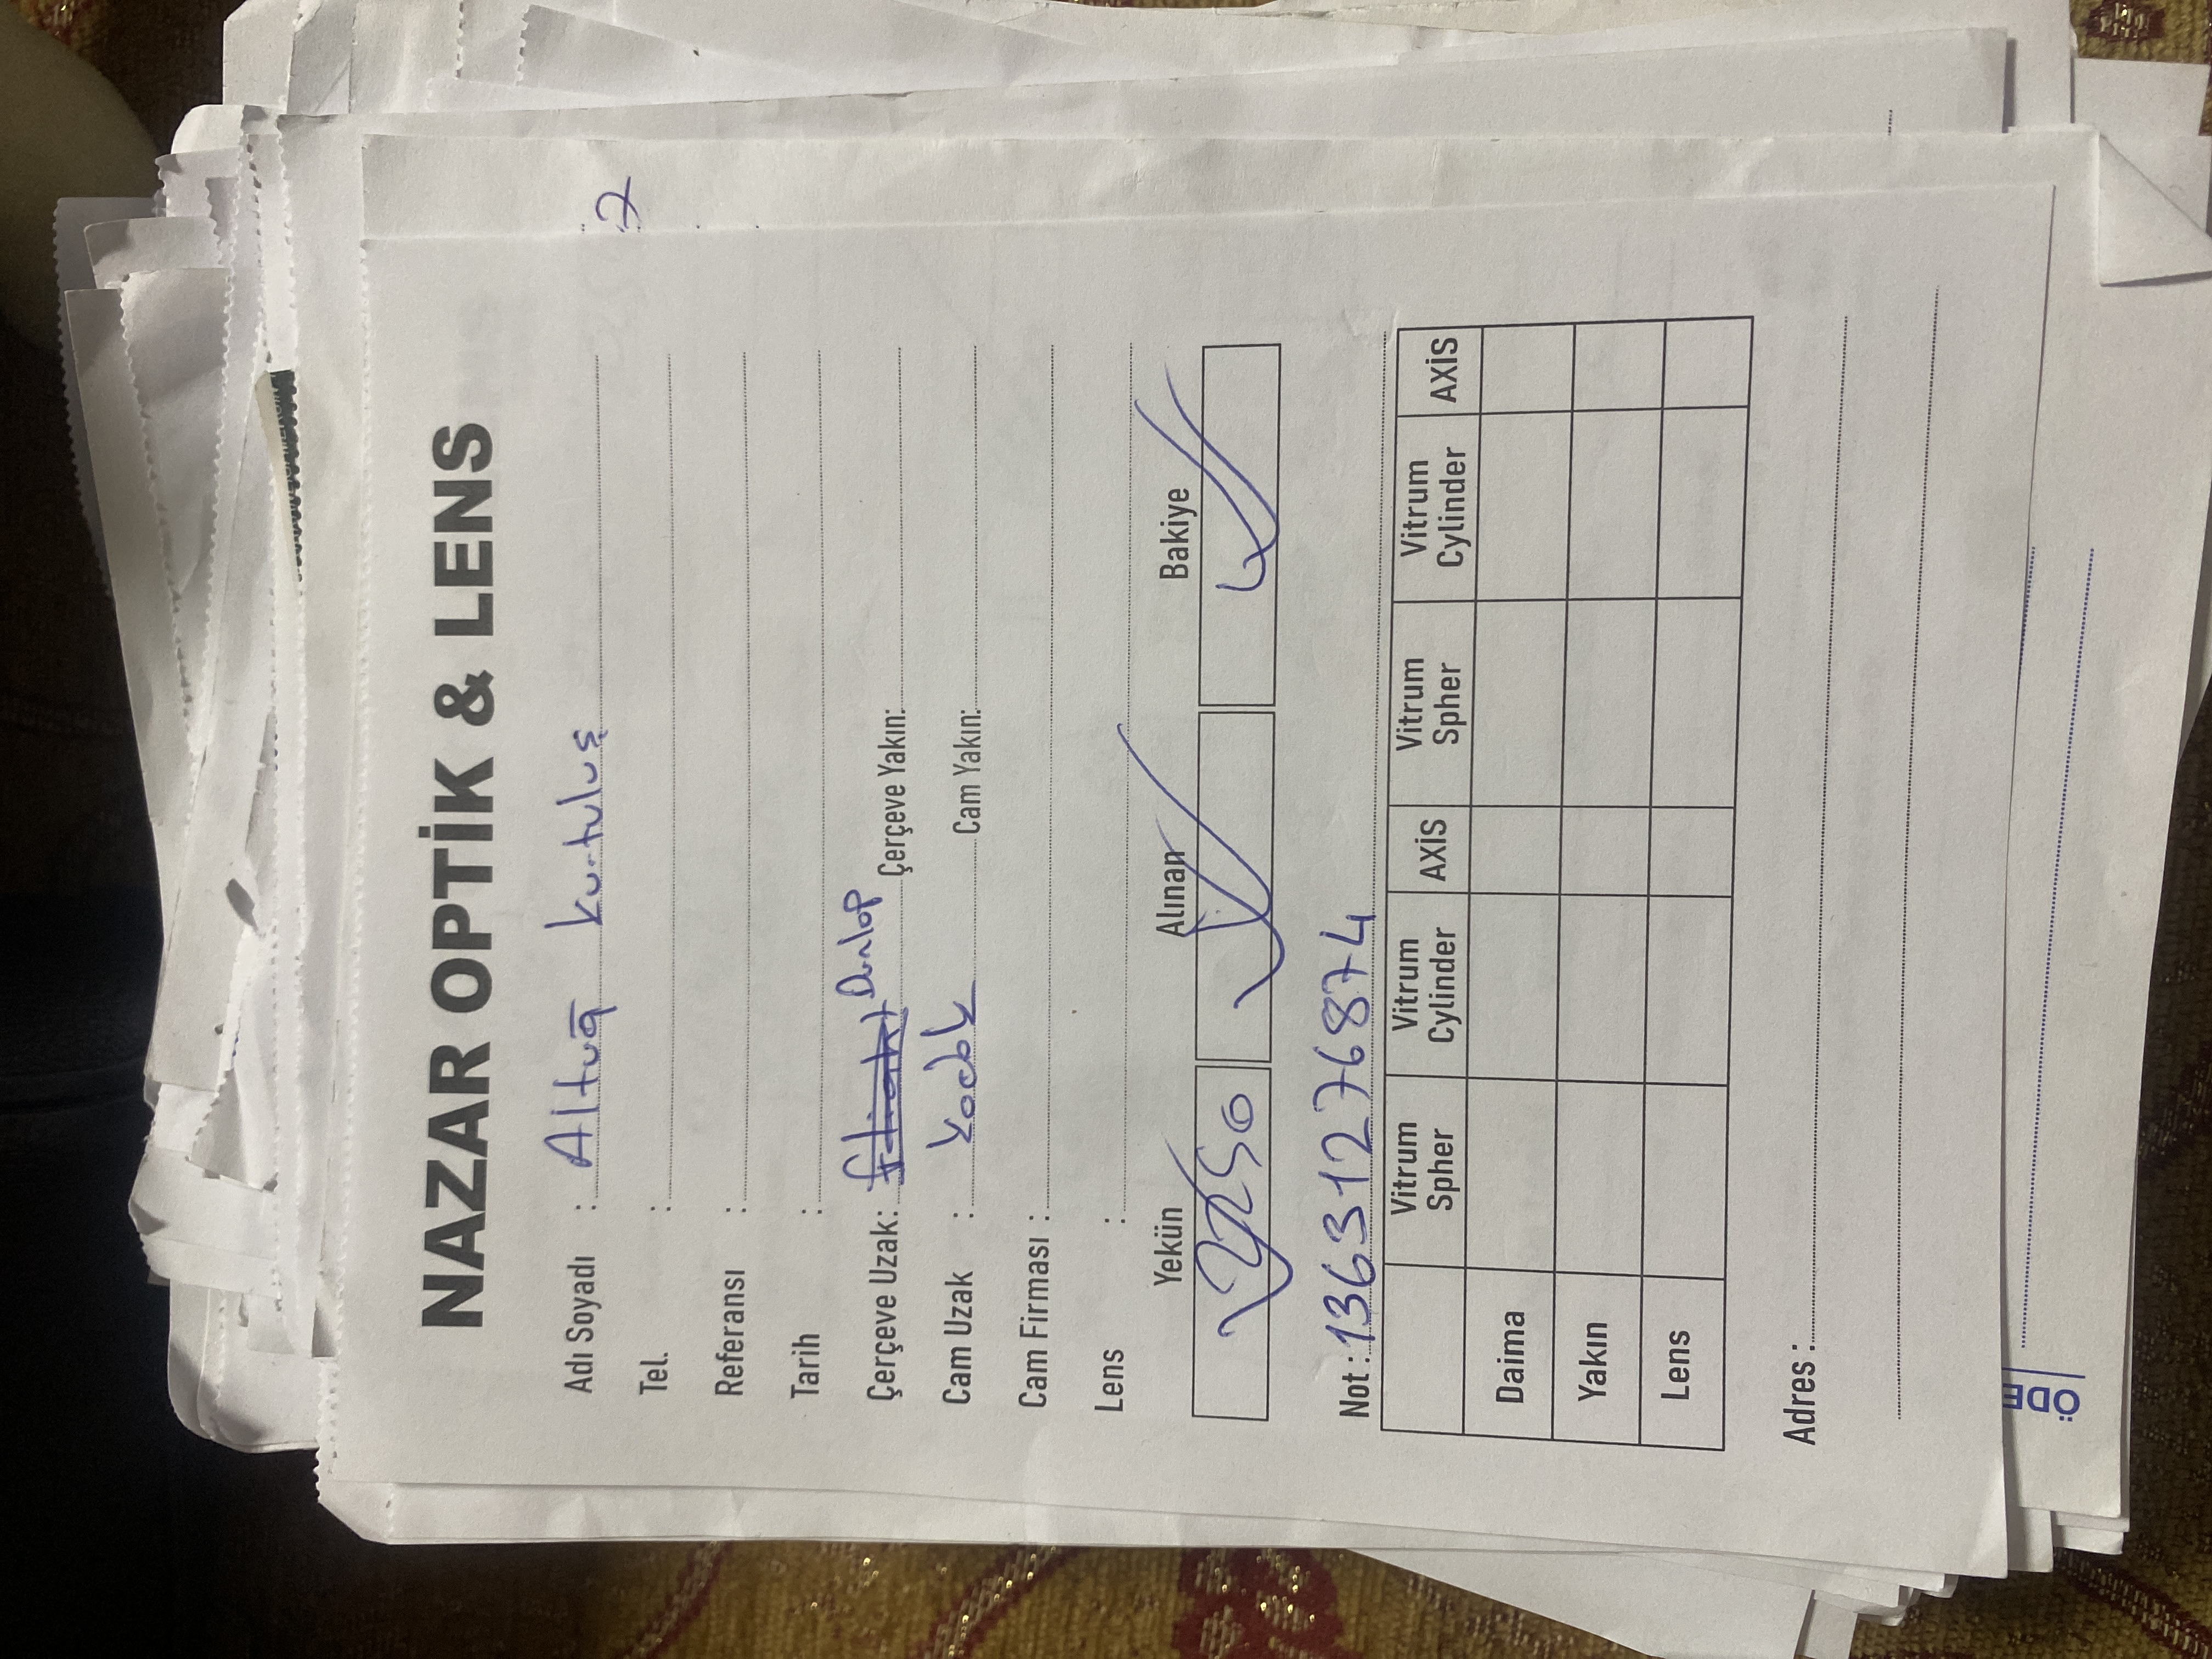 NAZAR OPTİK & LENS
Adı Soyadı : Altuğ Kurtuluş
2
Tel. :
Referansı :
Tarih :
Çerçeve Uzak: flight Dunlop Çerçeve Yakın:
Cam Uzak : Kodak Cam Yakın:
Cam Firması :
Lens :
Yekün Alınan Bakiye
2250
Not : 13631276874
Vitrum Spher Vitrum Cylinder AXİS Vitrum Spher Vitrum Cylinder AXİS
Daima
Yakın
Lens
Adres :
ÖDE